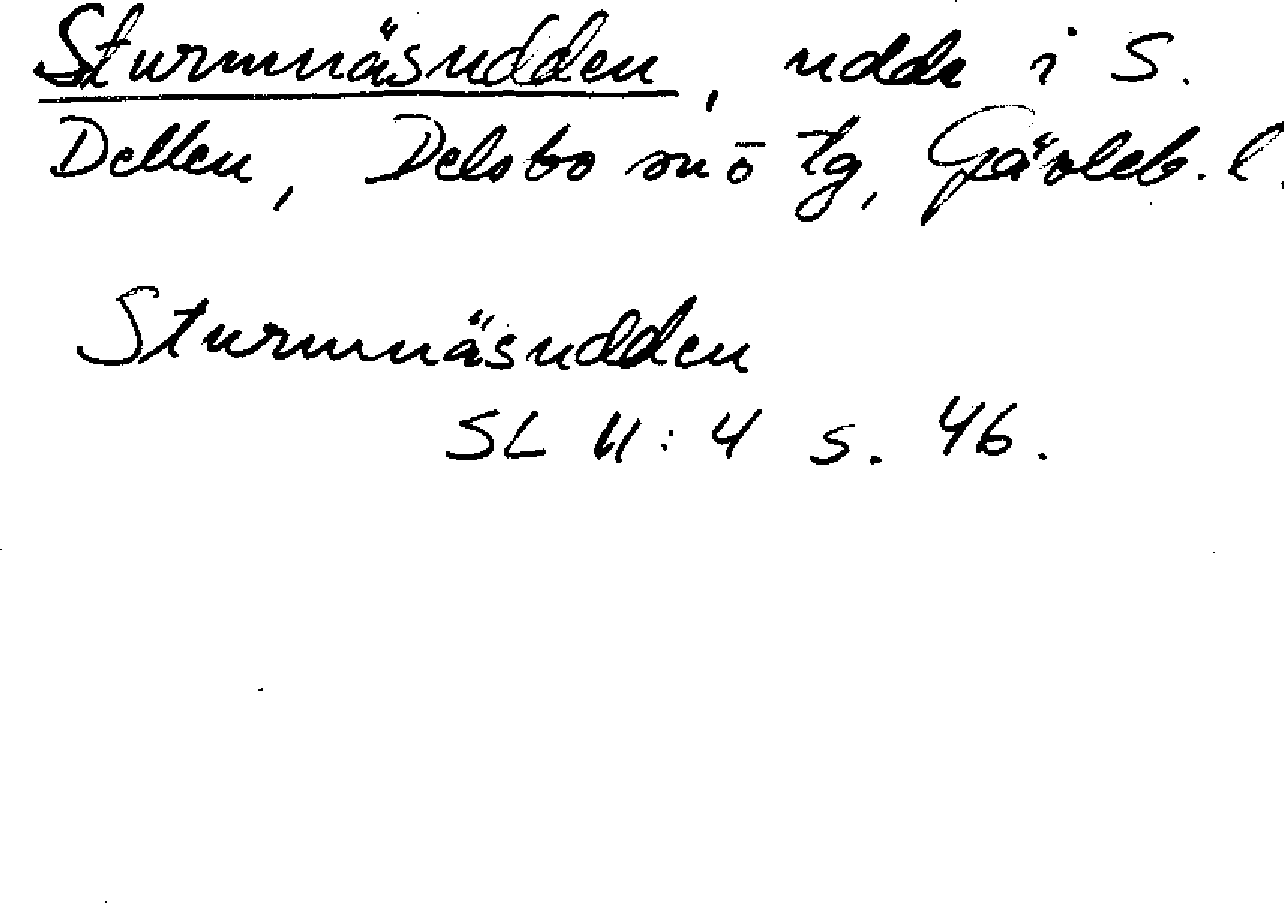 Sturmnäsudden, udde i S.
Dellen, Delsbo sn o tg, Gävleb. l.
Sturmnäsudden
SL II:4 s. 46.